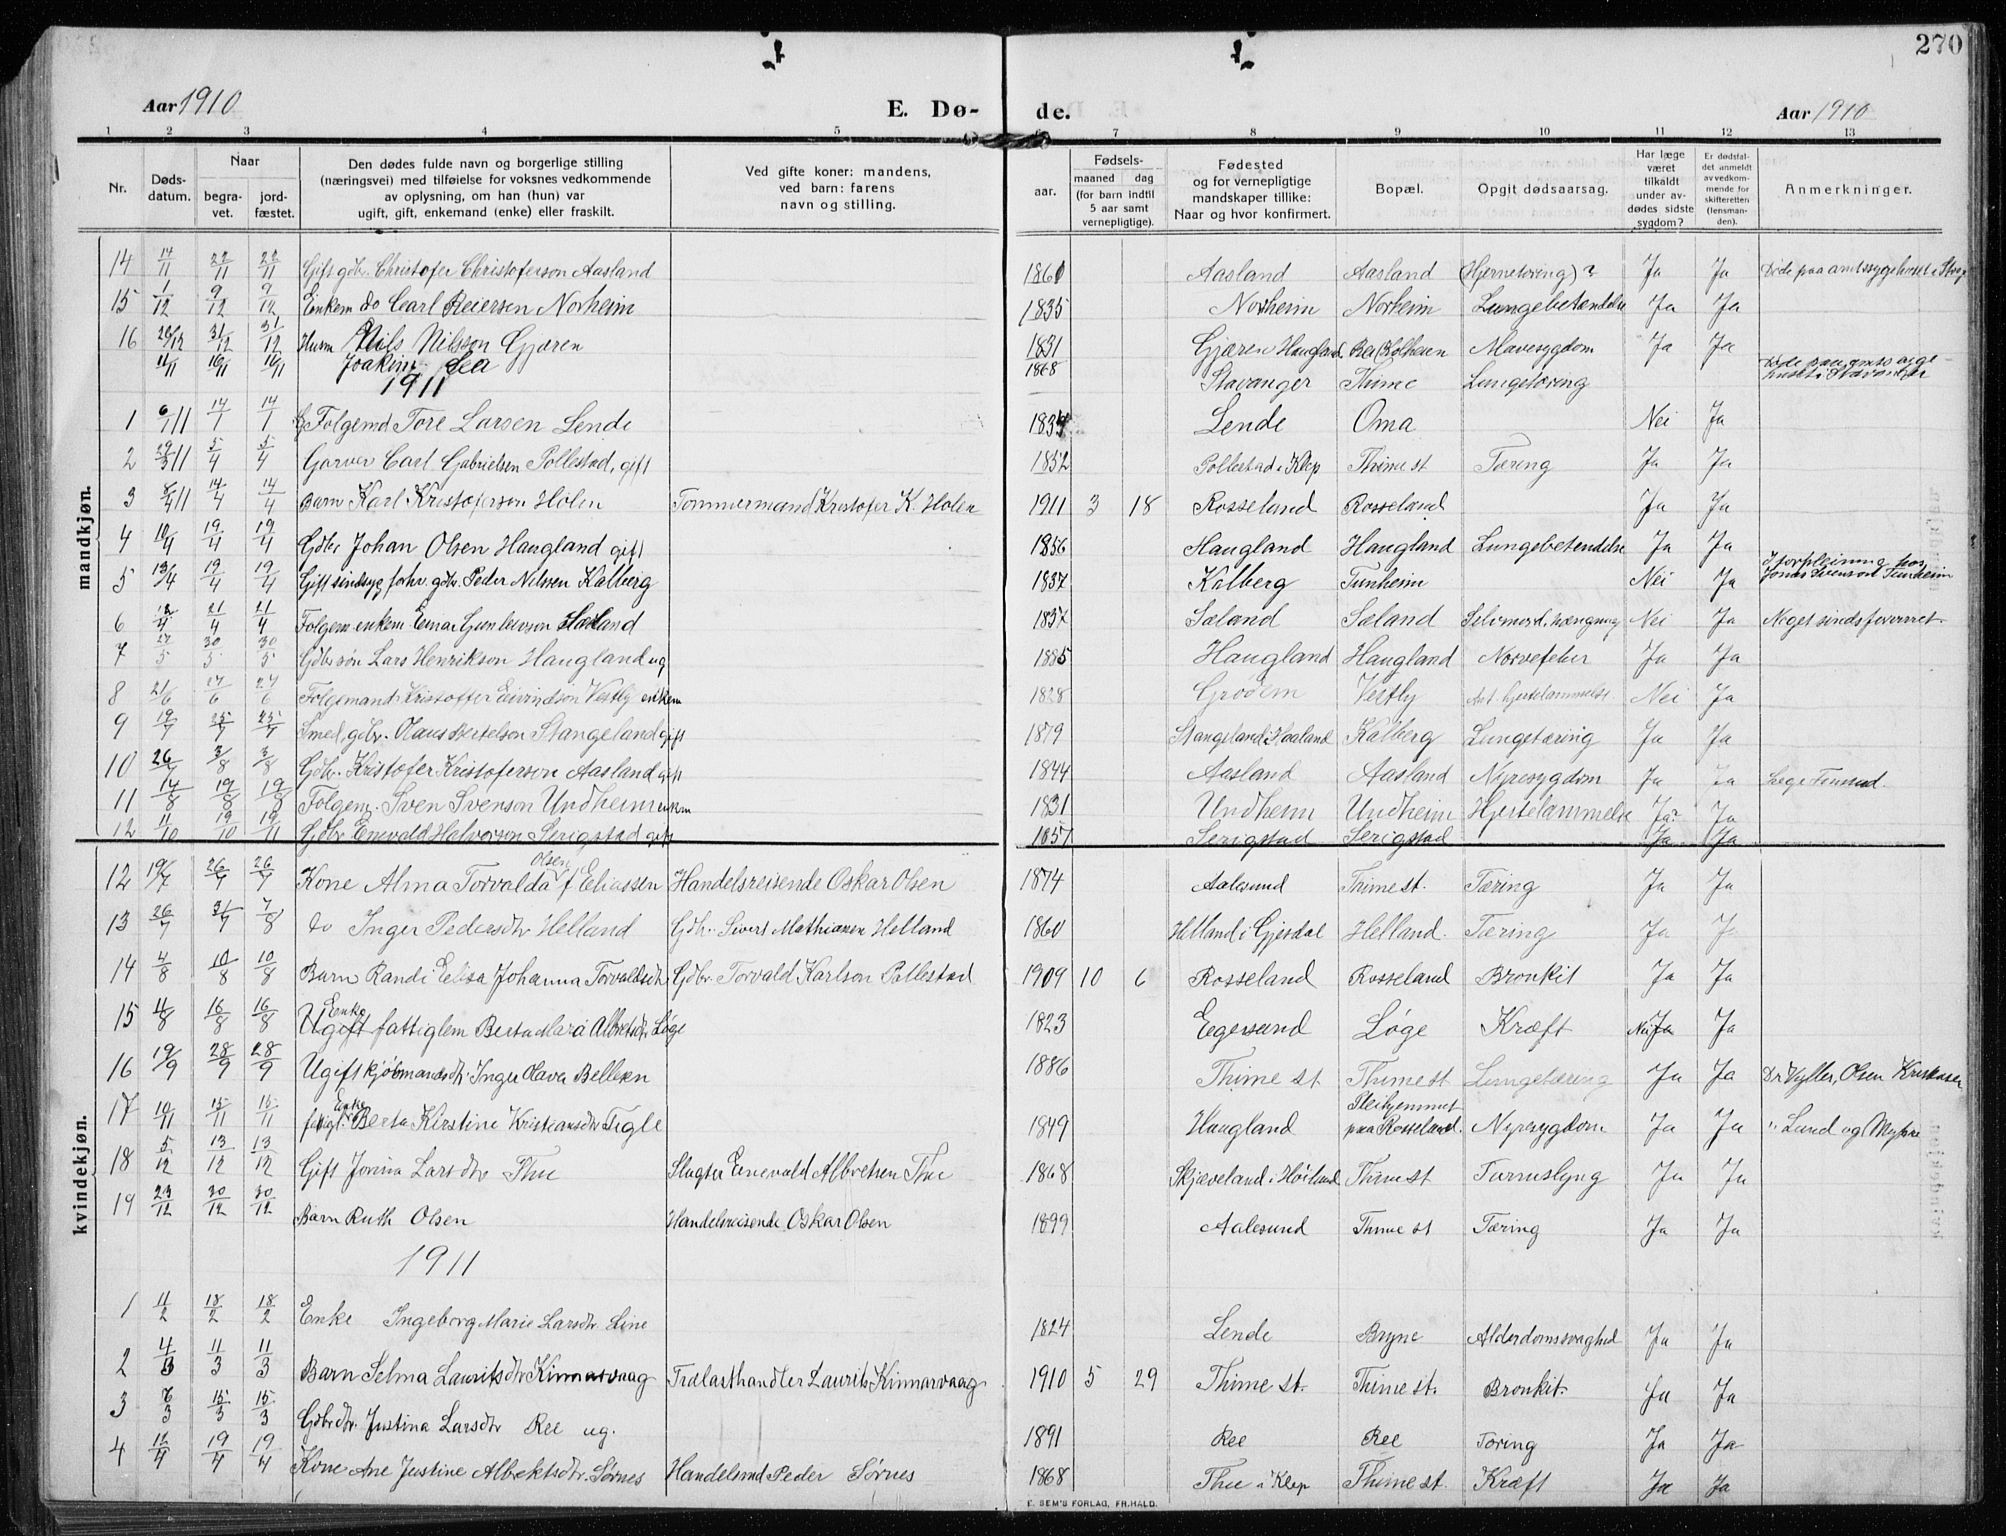 270
Aar 1910 E. Dø- de. Aar 1910
1 2 3 4 5 7 8 9 10 11 12 13
Nr. Døds-datum. Naar begra-vet. jord-fæstet. Den dødes fulde navn og borgerlige stilling (næringsvei) med tilføielse for voksnes vedkommende av oplysning, om han (hun) var ugift, gift, enkemand (enke) eller fraskilt. Ved gifte koner: mandens, ved barn: farens navn og stilling. aar. Fødsels- maaned dag (for barn indtil 5 aar samt vernepligtige). Fødested og for vernepligtige mandskaper tillike: Naar og hvor konfirmert. Bopæl. Opgit dødsaarsag. Har læge været tilkaldt under av-dødes sidste sygdom? Er dødsfal-det anmeldt av vedkom-mende for skifteretten (lensman-den). Anmerkninger.
mandkjøn.
14 14/11 22/11 22/11 Gift gdbr. Christofer Christoferson Aasland 1860 Aasland Aasland (Hjernetæring)? Ja Ja Døde paa amtssygehuset i Stvgr
15 1/12 9/12 9/12 Enkem do Carl Reiersen Norheim 1835 Norheim Norheim Lungebetendelse Ja Ja
16 31/12 31/12 Husm Nils Nilsson Gjæren 1831 Gjæren Haugland Mavesygdom Ja Ja
11/11 16/11 16/11 Joakim Lea 1868 Stavanger Thime Lungetæring Døde paa amtssyge huset i Stavanger
1911
1 6/1 11 14/1 14/1 Folgemd Tore Larsen Lende 1834 Lende Oma Nei Ja
2 29/3 11 5/4 5/4 Garver Carl Gabrielsen Pollestad, gift 1852 Pollestad i Klep Thime st Tæring Ja Ja
3 8/4 11 14/4 14/4 Barn Karl Kristofersen Holen Tømmermand Kristofer K. Holen 1911 3 18 Rosseland Rosseland Ja Ja
4 10/4 19/4 19/4 Gdbr Johan Olsen Haugland gift 1856 Haugland Haugland Lungebetendelse Ja Ja
5 13/4 19/4 19/4 Gift sindssyg forhv. gdbr. Peder Nilsen Kalberg 1837 Kalberg Tunheim Nei Ja I forpleining hos Jonas Svenson Tunheim
6 12/4 21/4 21/4 Folgem enkem Einar Gunleivson Sæland 1837 Sæland Sæland Selvmord, hængning Nei Ja Noget sindsforvirret
7 27/5 30/5 30/5 Gdbr søn Lars Henrikson Haugland ug 1885 Haugland Haugland Nervefeber Ja Ja
8 21/6 27/6 27/6 Folgemand Kristoffer Eivindson Vestly enkem 1828 Grødem Vestly Ant. hjertelammelse Nei Ja
9 19/7 25/7 25/7 Smed, gdbr. Olaus Bertelson Stangeland gift 1879 Stangeland i Haaland Kalberg Lungetæring Ja Ja
10 26/7 3/8 3/8 Gdbr. Kristofer Kristoferson Aasland gift 1844 Aasland Aasland Nyresygdom Ja Ja
11 14/8 19/8 19/8 Folgem. Sven Svenson Undheim enkem 1831 Undheim Undheim Hjertelammelse Ja Ja
12 11/10 19/10 19/11 Gdbr. Enevald Halvorson Serigstad gift 1857 Serigstad Serigstad Ja Ja
kvindekjøn.
12 19/7 26/7 26/7 Kone Alma Torvalda Olsen f Eliassen Handelsreisende Oskar Olsen 1874 Aalesund Thime st. Tæring Ja Ja
13 26/7 31/7 7/8 do Inger Pedersdtr Helland Gdbr. Sivert Mathiasen Helland 1860 Helland i Gjesdal Helland. Tæring Ja Ja
14 4/8 10/8 10/8 Barn Randi Elisa Johanna Torvaldsdtr Gdbr Torvald Karlson Pollestad 1909 10 6 Rosseland Rosseland Bronkit Ja Ja
15 11/8 16/8 16/8 Enke Ugift fattiglem Berta Albretsdtr Løge 1823 Egersund Løge Kræft Nei Ja Ja
16 19/9 28/9 28/9 Ugift kjøbmandsdtr. Inger Olava Bellesen 1886 Thime st Thime st Lungetæring Ja Ja Dr Vyller, Olsen
17 10/11 15/11 15/11 Enke fattigl. Berta Kirstine Kristiansdtr Tigle 1849 Haugland Pleihjemmet paa Rosseland. Nyresygdom Ja Ja " Lund og Myhre
18 5/12 13/12 13/12 Gift Jonina Larsdtr Thu Slagter Enevald Albretsen Thu 1868 Skjæveland i Høiland Thime st Tarmslyng Ja Ja
19 23/12 30/12 30/12 Barn Ruth Olsen Handelsreisende Oskar Olsen 1899 Aalesund Thime st Tæring Ja Ja
1911
1 11/2 18/2 18/2 Enke Ingeborg Marie Larsdtr Line 1824 Lende Bryne Alderdomssvaghed Ja Ja
2 4/3 11/3 11/3 Barn Selma Lauritsdtr Kinnarvaag Trælasthandler Laurits Kinnarvaag 1910 5 29 Thime st. Thime st. Bronkit Ja Ja
3 6/3 15/3 15/3 Gdbrdtr. Justina Larsdtr Ree ug. 1891 Ree Ree Tæring Ja Ja
4 12/4 19/4 19/4 Kone Ane Justine Albrektsdtr. Sørnes Handelsmd Peder Sørnes 1868 Thu i Klep Thime st. Kræft Ja Ja
E. SEM'S FORLAG, FR.HALD.